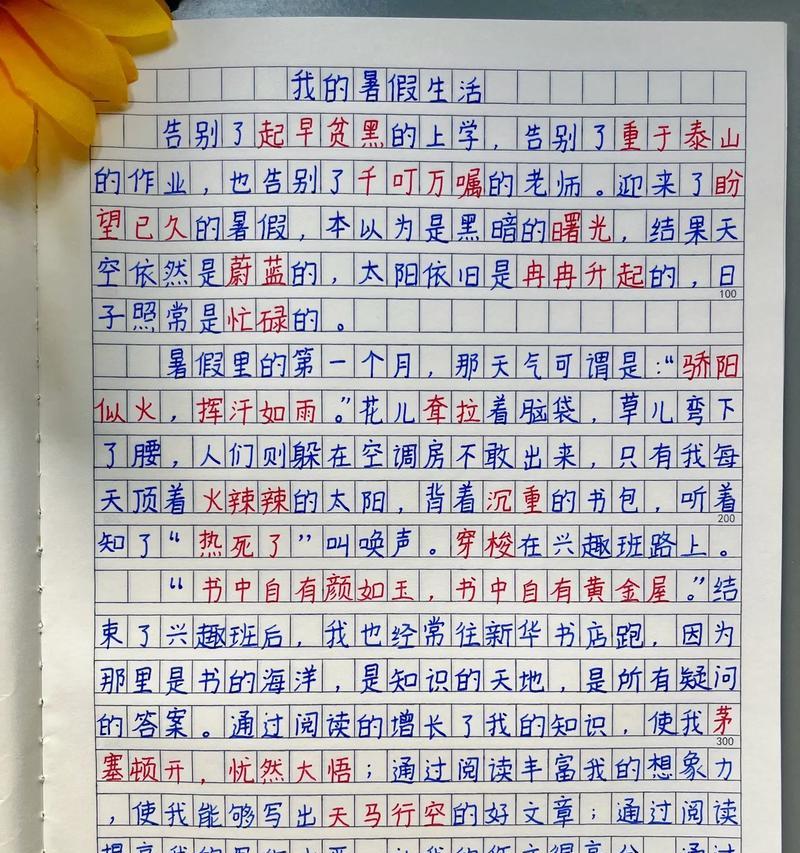 我的暑假生活
告别了起早贫黑的上学，告别了重于泰山
的作业，也告别了千叮万嘱的老师。迎来了盼
望已久的暑假，本以为是黑暗的曙光，结果天
空依然是蔚蓝的，太阳依旧是冉冉升起的，日
100
子照常是忙碌的。
暑假里的第一个月，那天气可谓是：“骄阳
似火，挥汗如雨。”花儿耷拉着脑袋，草儿弯下
了腰，人们则躲在空调房不敢出来，只有我每
天顶着火辣辣的太阳，背着沉重的书包，听着
200
知了“热死了”叫唤声。穿梭在兴趣班路上。
“书中自有颜如玉，书中自有黄金屋。”结
束了兴趣班后，我也经常往新华书店跑，因为
那里是书的海洋，是知识的天地，是所有疑问
的答案。通过阅读的增长了我的知识，使我茅
300
塞顿开，恍然大悟；通过阅读丰富我的想象力
，使我能够写出天马行空的好文章；通过阅读